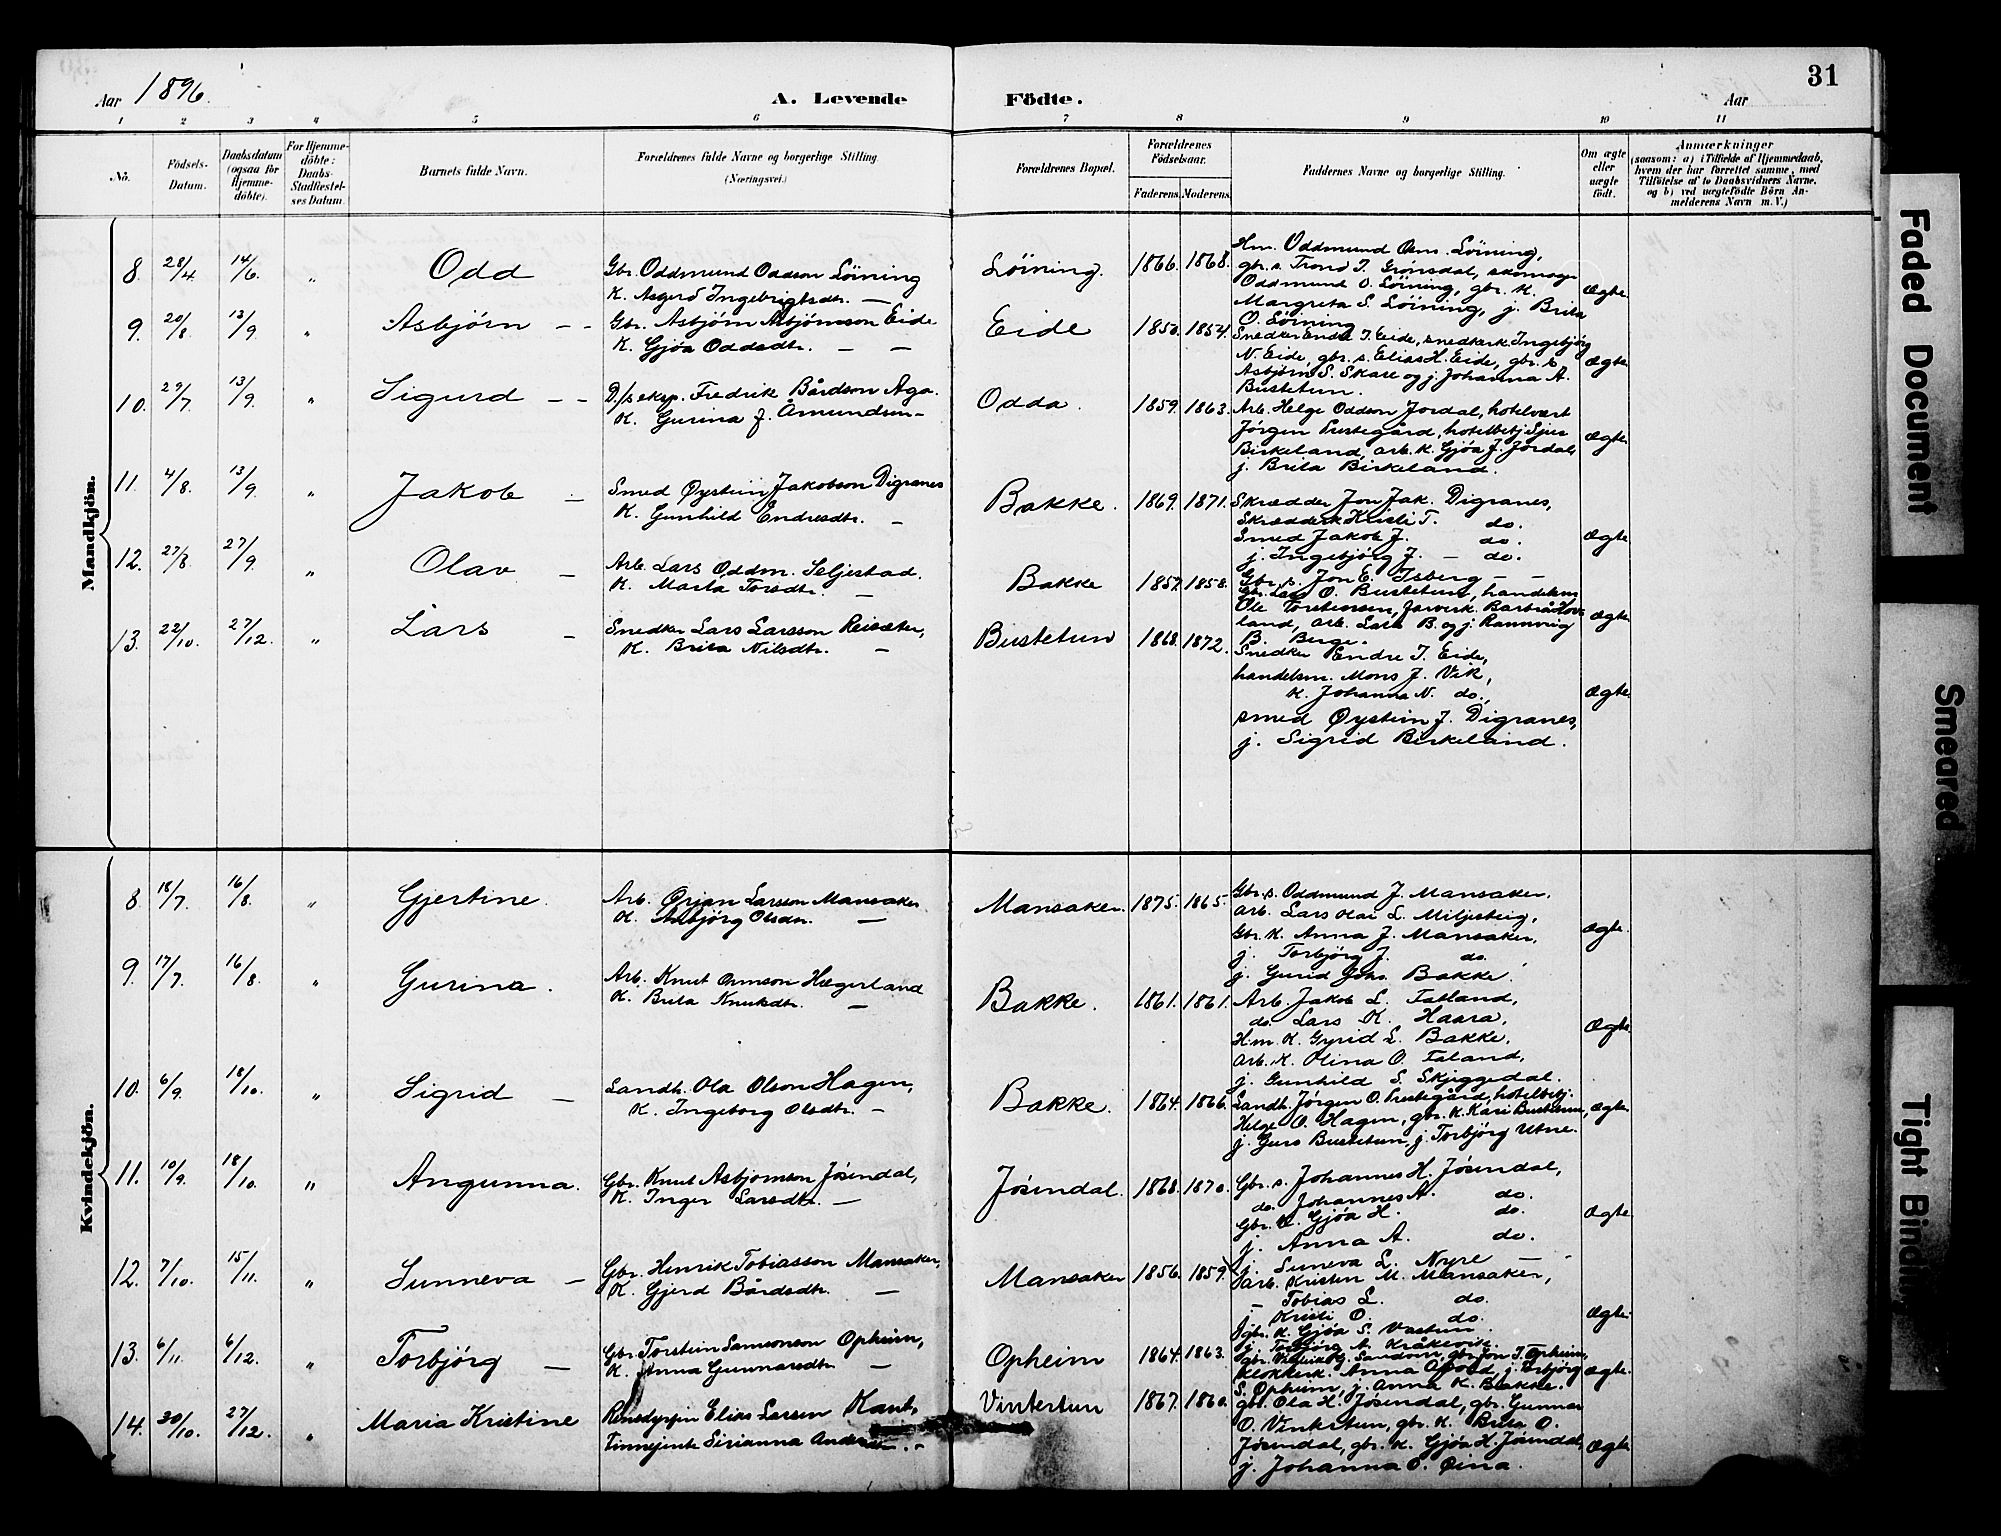 31
Aar 1896. A. Levende Födte. Aar
1 2 3 4 5 6 7 8 9 10 11
No. Födsels-Datum. Daabsdatum (ogsaa for Hjemme-döbte). For Hjemme-döbte: Daabs-Stadfæstel-ses Datum. Barnets fulde Navn. Forældrenes fulde Navne og borgerlige Stilling. (Næringsvei.) Forældrenes Bopæl. Forældrenes Födselsaar. Faderens. Moderens. Faddernes Navne og borgerlige Stilling. Om ægte eller uægte födt. Anmærkninger (saasom: a) i Tilfælde af Hjemmedaab, hvem der har forrettet samme, med Tilföielse af to Daabsvidners Navne, og b) ved uægtefödte Börn An-melderens Navn m. V.)
Mandkjön.
8. 28/4 14/6. " Odd Gbr. Oddmund Oddson Löining Löining. 1866. 1868. Hm. Oddmund Löining,
K. Asgerd Ingebrigtsdtr. — gbr. s. Trond T. Grönsdal, skomager
Oddmund O. Löining, gbr. K. Ægte.
Margreta S. Löining, j. Brita
O. Löining
9. 20/8 13/9 " Asbjörn — — Gbr. Asbjörn Asbjörnson Eide Eide 1850. 1854. Snedker Endre I. Eide, snedkerk. Ingebjörg
K. Gjöa Oddsdtr. — — N. Eide, gbr. s. Elias H. Eide, gbr. s. Ægte
Asbjörn S. Skare og j. Johanna A.
Bustetun.
10. 29/7 13/9 " Sigurd — — D/s eksp. Fredrik Bårdson Aga. Odda. 1859. 1863. Arb. Helge Oddson Jordal, hotelvært
K. Gurina J. Åmundsen — Jörgen Prestegård, hotelbetj. Sjur Ægte
Birkeland, arb. K. Gjöa J. Jordal,
j. Brita Birkeland.
11. 4/8. 13/9. " Jakob — Smed Øystein Jakobson Digranes Bakke. 1869. 1871. Skrædder Jon Jak. Digranes,
K. Gunhild Endresdtr. — Skrædderk. Kristi T. do.
Smed Jakob J. do. Ægte
j. Ingebjörg J. — do.
Gbr. s. Jon E. Isberg — —
12. 27/8 27/9. " Olav — Arb. Lars Oddm. Seljestad. Bakke 1857. 1858. Gbr. Lars O. Bustetun, handelsm.
K. Marta Torsdtr. — Ole Torstensen, Barbra Hov-
land, arb. Lars B. og j. Rannveig Ægte
B. Berge.
13. 22/10. 27/12. " Lars — Snedker Lars Larsson Reisæter, Bustetun 1868. 1872. Snedker Endre I. Eide,
K. Brita Nilsdtr. — handelsm. Mons J. Vik,
K. Johanna N. do. Ægte
smed Øystein J. Digranes,
j. Sigrid Birkeland.
Kvindekjön.
8. 18/7 16/8. " Gjertine. Arb. Örjan Larsson Mansaker Mansaker. 1875. 1865. Gbr. s. Oddmund J. Mansaker.
K. Asbjörg Olsdtr. — arb. Lars Olai L. Miljesteig,
Gbr. K. Anna J. Mansaker, Ægte.
j. Torbjörg J. do.
j. Gurid Johs. Bakke.
9. 17/7. 16/8. " Gurina. Arb. Knut Ormson Hægerland Bakke. 1861. 1861. Arb. Jakob L. Tatland,
K. Brita Knutsdtr. — do. Lars K. Haara,
H.m. K. Gyrid L. Bakke, Ægte
arb. K. Olina O. Taland,
j. Gunhild S. Skjeggedal.
10. 6/9. 18/10. " Sigrid — Landh. Ola Olson Hagen, Bakke. 1864. 1866. Landh. Jörgen O. Prestegård, hotelbetj.
K. Ingeborg Olsdtr. — Helge O. Hagen, gbr. K. Kari Bustetun, Ægte
j. Guro Bustetun, j. Torbjörg Utne.
11. 10/9. 18/10. " Angunna. Gbr. Knut Asbjörnson Jösendal, Jösendal. 1868. 1870. Gbr. s. Johannes H. Jösendal,
K. Inger Larsdtr. — do. Johannes A. do.
Gbr. K. Gjöa H. do. Ægte
j. Anna A. do.
j. Suneva L. Nyre —
12. 7/10. 15/11. " Sunneva — Gbr. Henrik Tobiasson Mansaker, Mansaker 1856. 1859. arb. Kristen M. Mansaker,
K. Gjerd Bårdsdtr. — — Tobias L. do.
Kristi O. do. Ægte
gbr. K. Gjöa S. Vastun.
j. Torbjörg A. Kråkevik.
13. 6/11. 6/12. " Torbjörg — Gbr. Torstein Samsonson Opheim, Opheim 1864. 1863. gbr. Sandven, gbr. Jon T. Opheim,
K. Anna Gunnarsdtr. — Klokkerk. Anna j. Torbjörg Ægte
S. Opheim, j. Anna K. Bakke.
14. 30/10. 27/12. " Maria Kristine Rensdyreier Elias Larsen Kant, Vintertun 1867. 1860. gbr. Ola H. Jösendal, gbr. Gunnar
Finnejente Sirianna — O. Vintertun, gbr. K. Brita O.
Jösendal, gbr. K. Gjöa H. Jösendal, Ægte
j. Johanna O. Øina.
Faded Document
Smeared
Tight Bindin